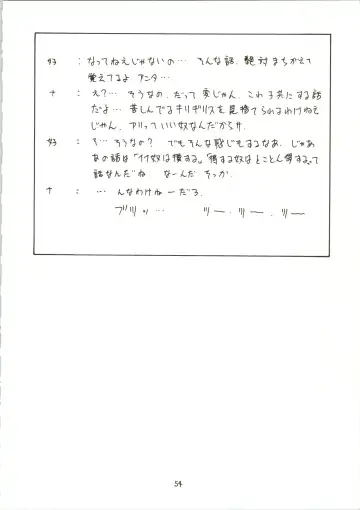 好 : なってねえじゃないの… そんな話、絶対まちがえて
覚えてるよ アンタ…
ナ : え?… そうなの、だって変じゃん、これ子供にする話
だよ… 苦しんでるキリギリスを見捨てられるわけねえ
じゃん、アリっていい奴なんだからサ
好 : え…そうなの? でもそんな感じもするなあ、じゃあ
あの話は「イイ奴は損する。」「得する奴はとことん得する。」って
話なんだね なーんだ そっか、
ナ : … んなわけねーだろ、
ブツッ… ツー、ツー、ツー
54